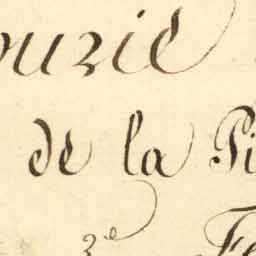 ourie
de la Pi
3e Fe